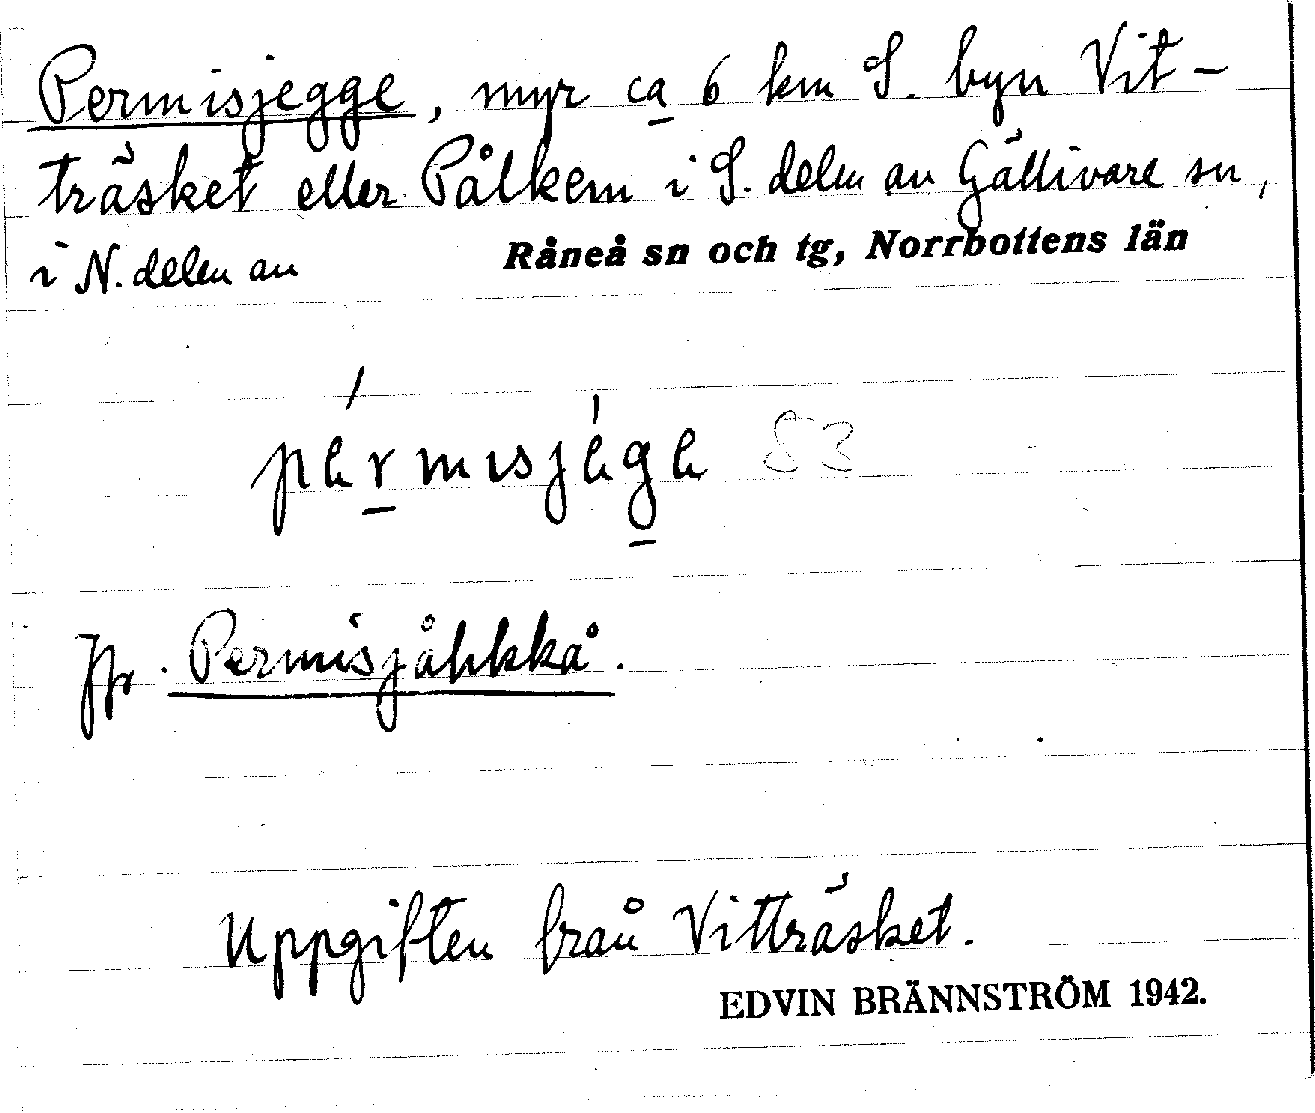 Permisjegge, myr ca 6 km S. byn Vit-
träsket eller Pålkem i S. delen av Gällivare sn,
i N. delen av Råneå sn och tg, Norrbottens län
83
Jfr. Permisjåhkkå.
Uppgiften från Vitträsket.
EDVIN BRÄNNSTRÖM 1942.